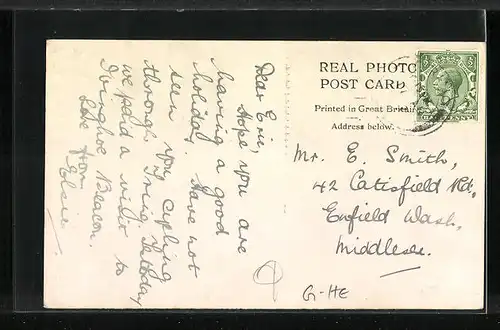 Dear Eric,
Hope you are
having a good
holiday. Have not
seen you cycling
through Tring. Today
we paid a visit to
Ivinghoe Beacon.
Love from
Elsie
REAL PHOTO
POST CARD
Printed in Great Britain
Address below.
Mr. E. Smith,
42 Catisfield Rd,
Enfield Wash,
Middlesex.
G-HE
HALFPENNY